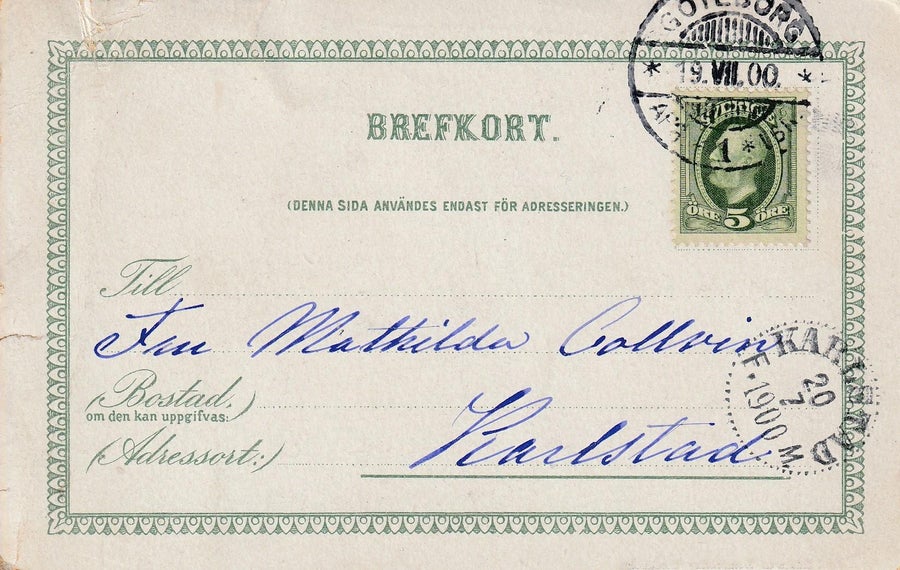 GÖTEBORG
19.VII.00.
1
BREFKORT.
ÖRE 5 ÖRE
(DENNA SIDA ANVÄNDES ENDAST FÖR ADRESSERINGEN.)
Till
Fru Mathilda Collvin
KARLSTAD
20
7
1900
F. M
(Bostad,
om den kan uppgifvas:)
Karlstad
(Adressort:)